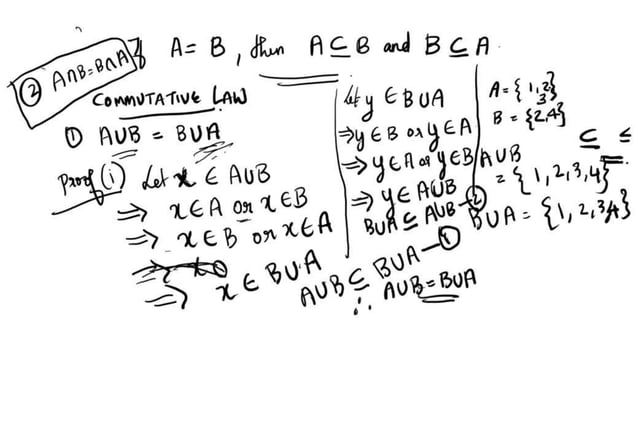 If A = B, then A ⊆ B and B ⊆ A
② A∩B=B∩A
COMMUTATIVE LAW
① A∪B = B∪A
Proof (i) Let x ∈ A∪B
⇒ x∈A or x∈B
⇒ x∈B or x∈A
⇒ x ∈ B∪A
A∪B ⊆ B∪A —①
∴ A∪B = B∪A
let y ∈ B∪A
⇒ y∈B or y∈A
⇒ y∈A or y∈B
⇒ y∈ A∪B
B∪A ⊆ A∪B —②
A = {1,2,3}
B = {2,4}
⊆ ≤
A∪B
= {1,2,3,4}
B∪A = {1,2,3,4}